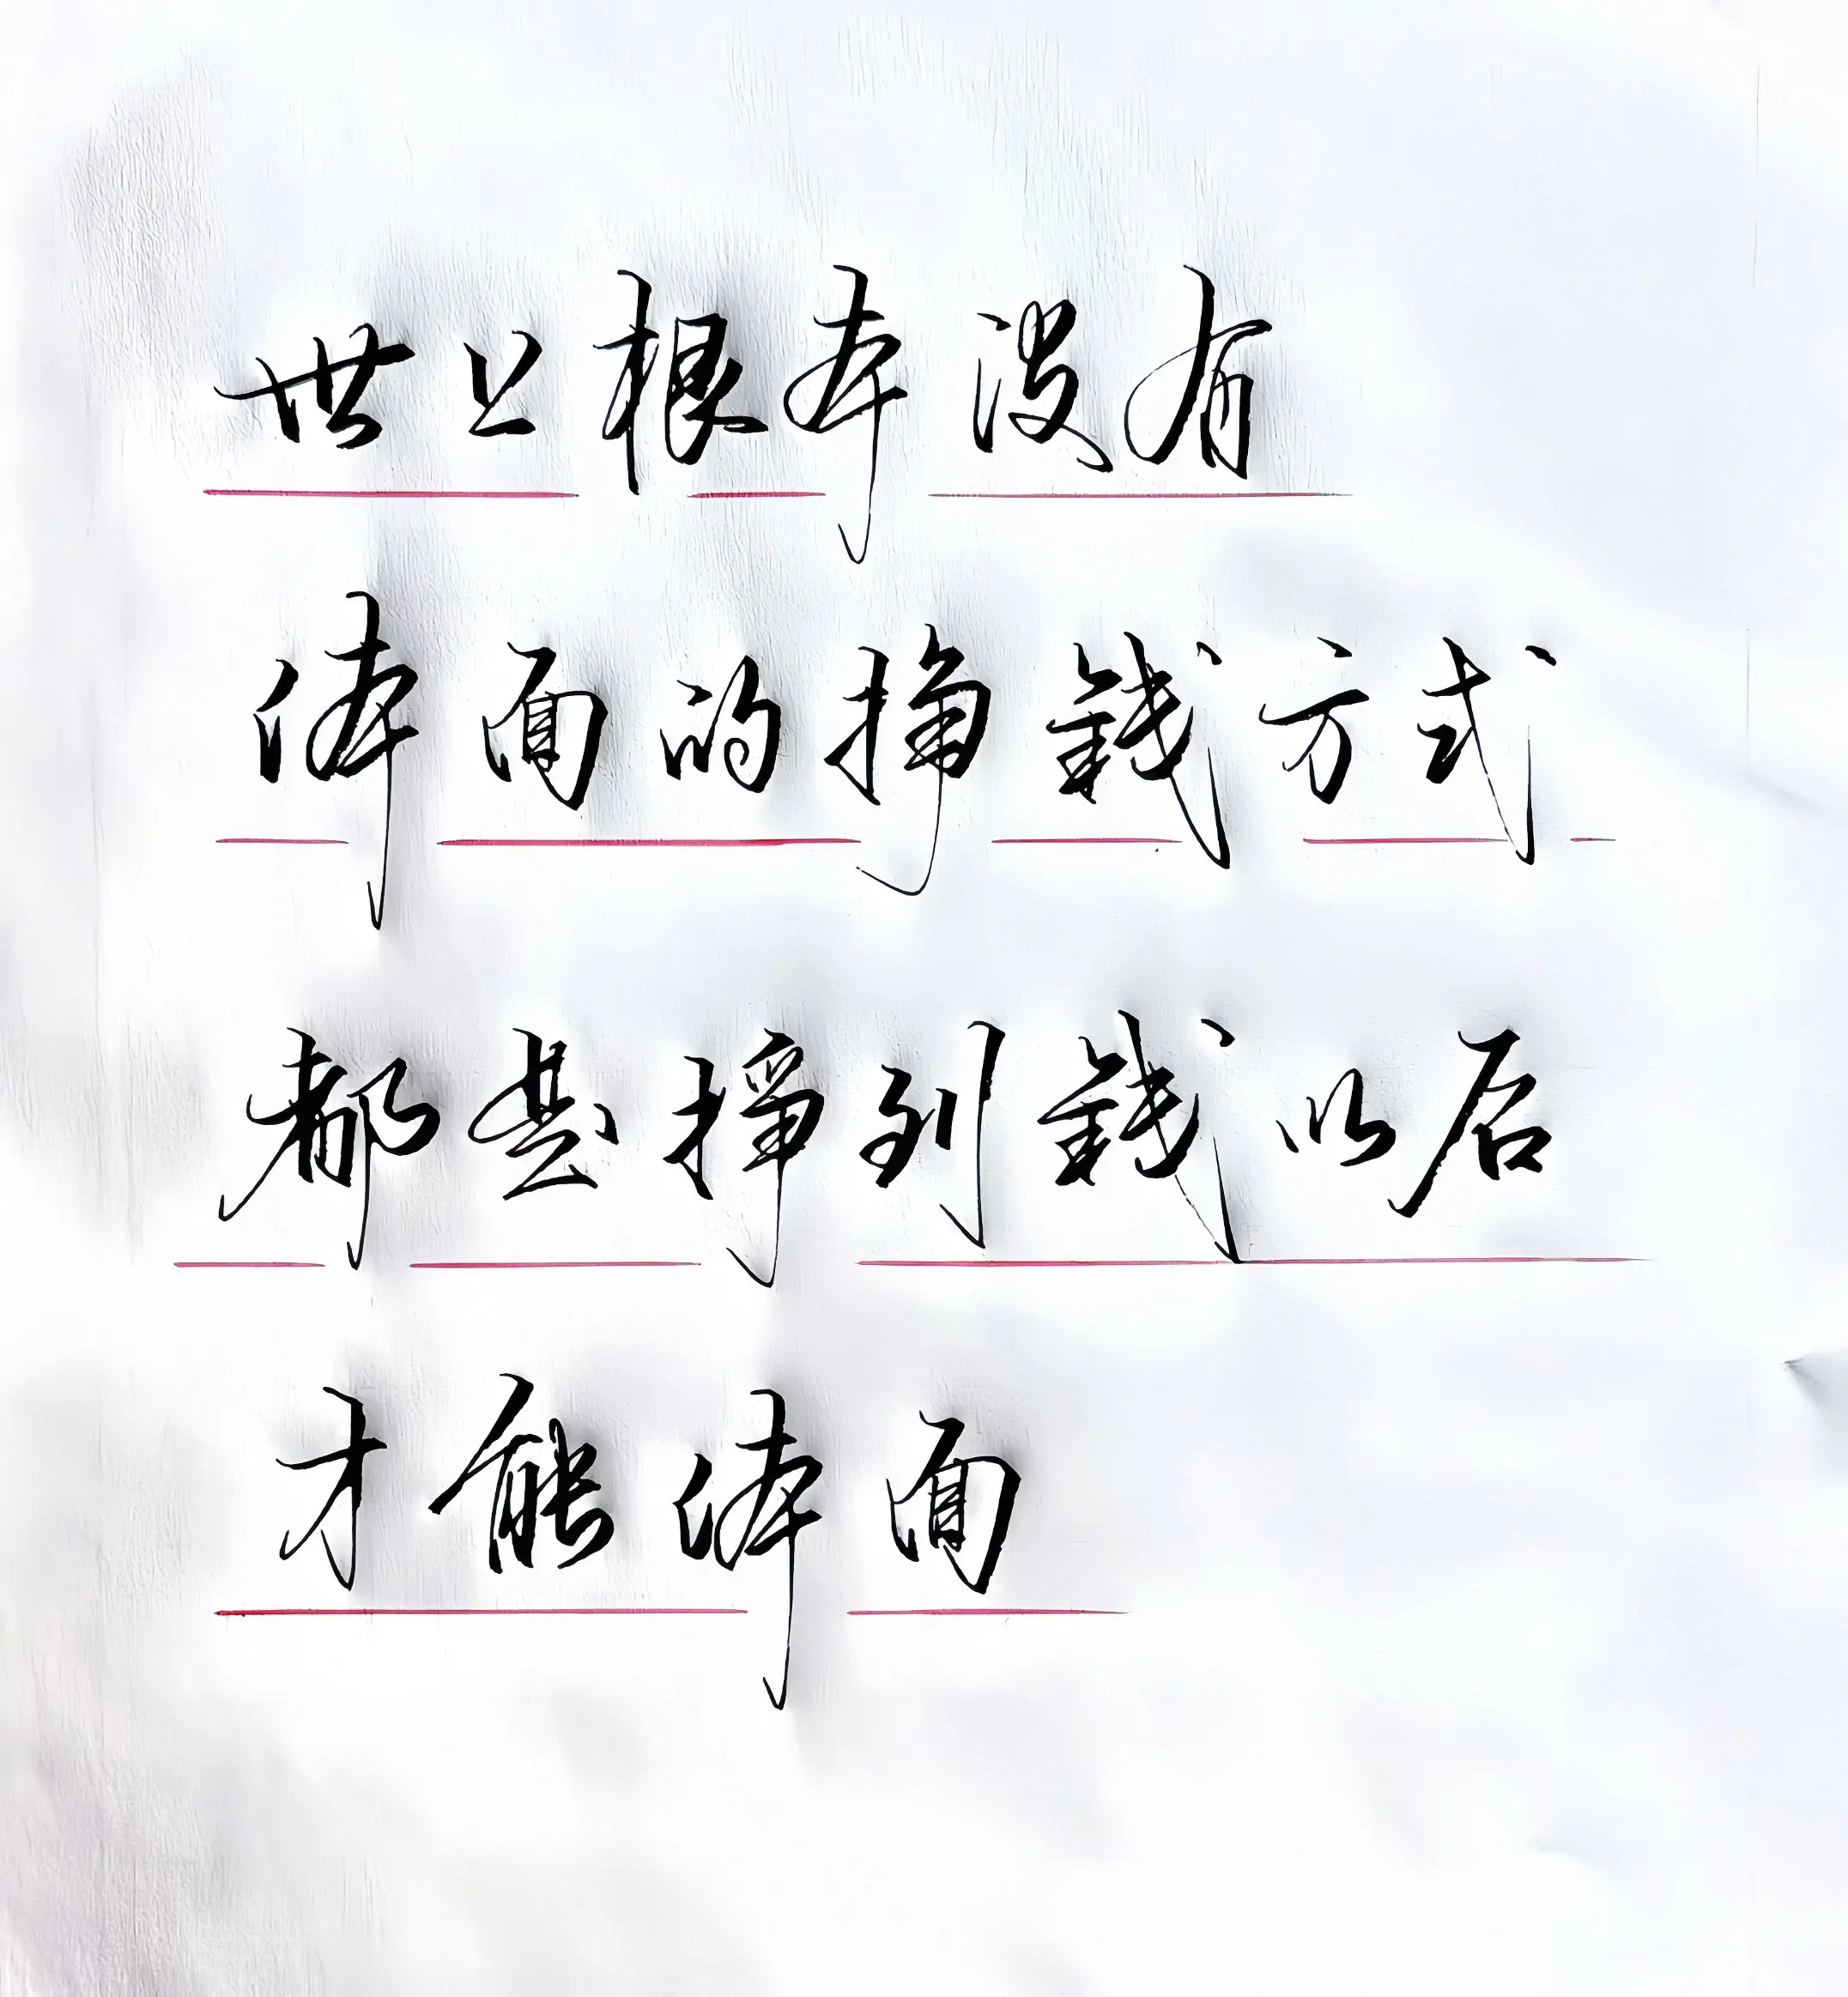 世上根本没有
体面的挣钱方式
都挣到钱以后
才能体面